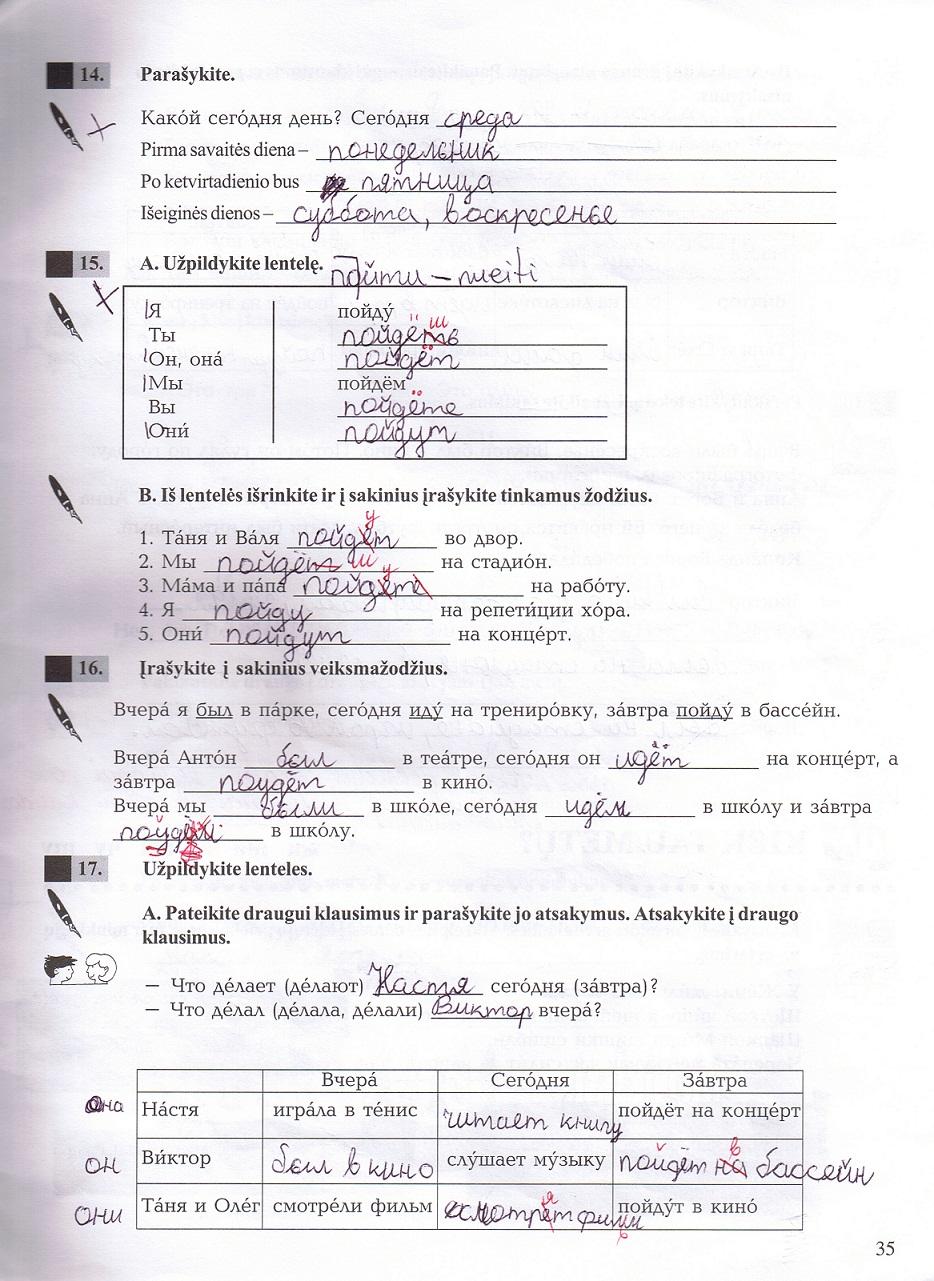 14. Parašykite.
Како́й сего́дня день? Сего́дня среда
Pirma savaitės diena – понедельник
Po ketvirtadienio bus пятница
Išeiginės dienos – суббота, воскресенье
15. A. Užpildykite lentelę. пойти – nueiti
Я пойду́
Ты пойдёшь
Он, она́ пойдёт
Мы пойдём
Вы пойдёте
Они́ пойдут
B. Iš lentelės išrinkite ir į sakinius įrašykite tinkamus žodžius.
1. Та́ня и Ва́ля пойдут во двор.
2. Мы пойдём на стадио́н.
3. Ма́ма и па́па пойдут на рабо́ту.
4. Я пойду на репети́ции хо́ра.
5. Они́ пойдут на конце́рт.
16. Įrašykite į sakinius veiksmažodžius.
Вчера́ я был в па́рке, сего́дня иду́ на трениро́вку, за́втра пойду́ в бассе́йн.
Вчера́ Анто́н был в теа́тре, сего́дня он идёт на конце́рт, а
за́втра пойдёт в кино́.
Вчера́ мы были в шко́ле, сего́дня идём в шко́лу и за́втра
пойдём в шко́лу.
17. Užpildykite lenteles.
A. Pateikite draugui klausimus ir parašykite jo atsakymus. Atsakykite į draugo
klausimus.
– Что де́лает (де́лают) Настя сего́дня (за́втра)?
– Что де́лал (де́лала, де́лали) Виктор вчера́?
Вчера́ Сего́дня За́втра
Она На́стя игра́ла в те́нис читает книгу пойдёт на конце́рт
он Ви́ктор был в кино слу́шает му́зыку пойдёт в бассейн
они Та́ня и Оле́г смотре́ли фильм смотрят фильм пойду́т в кино́
35